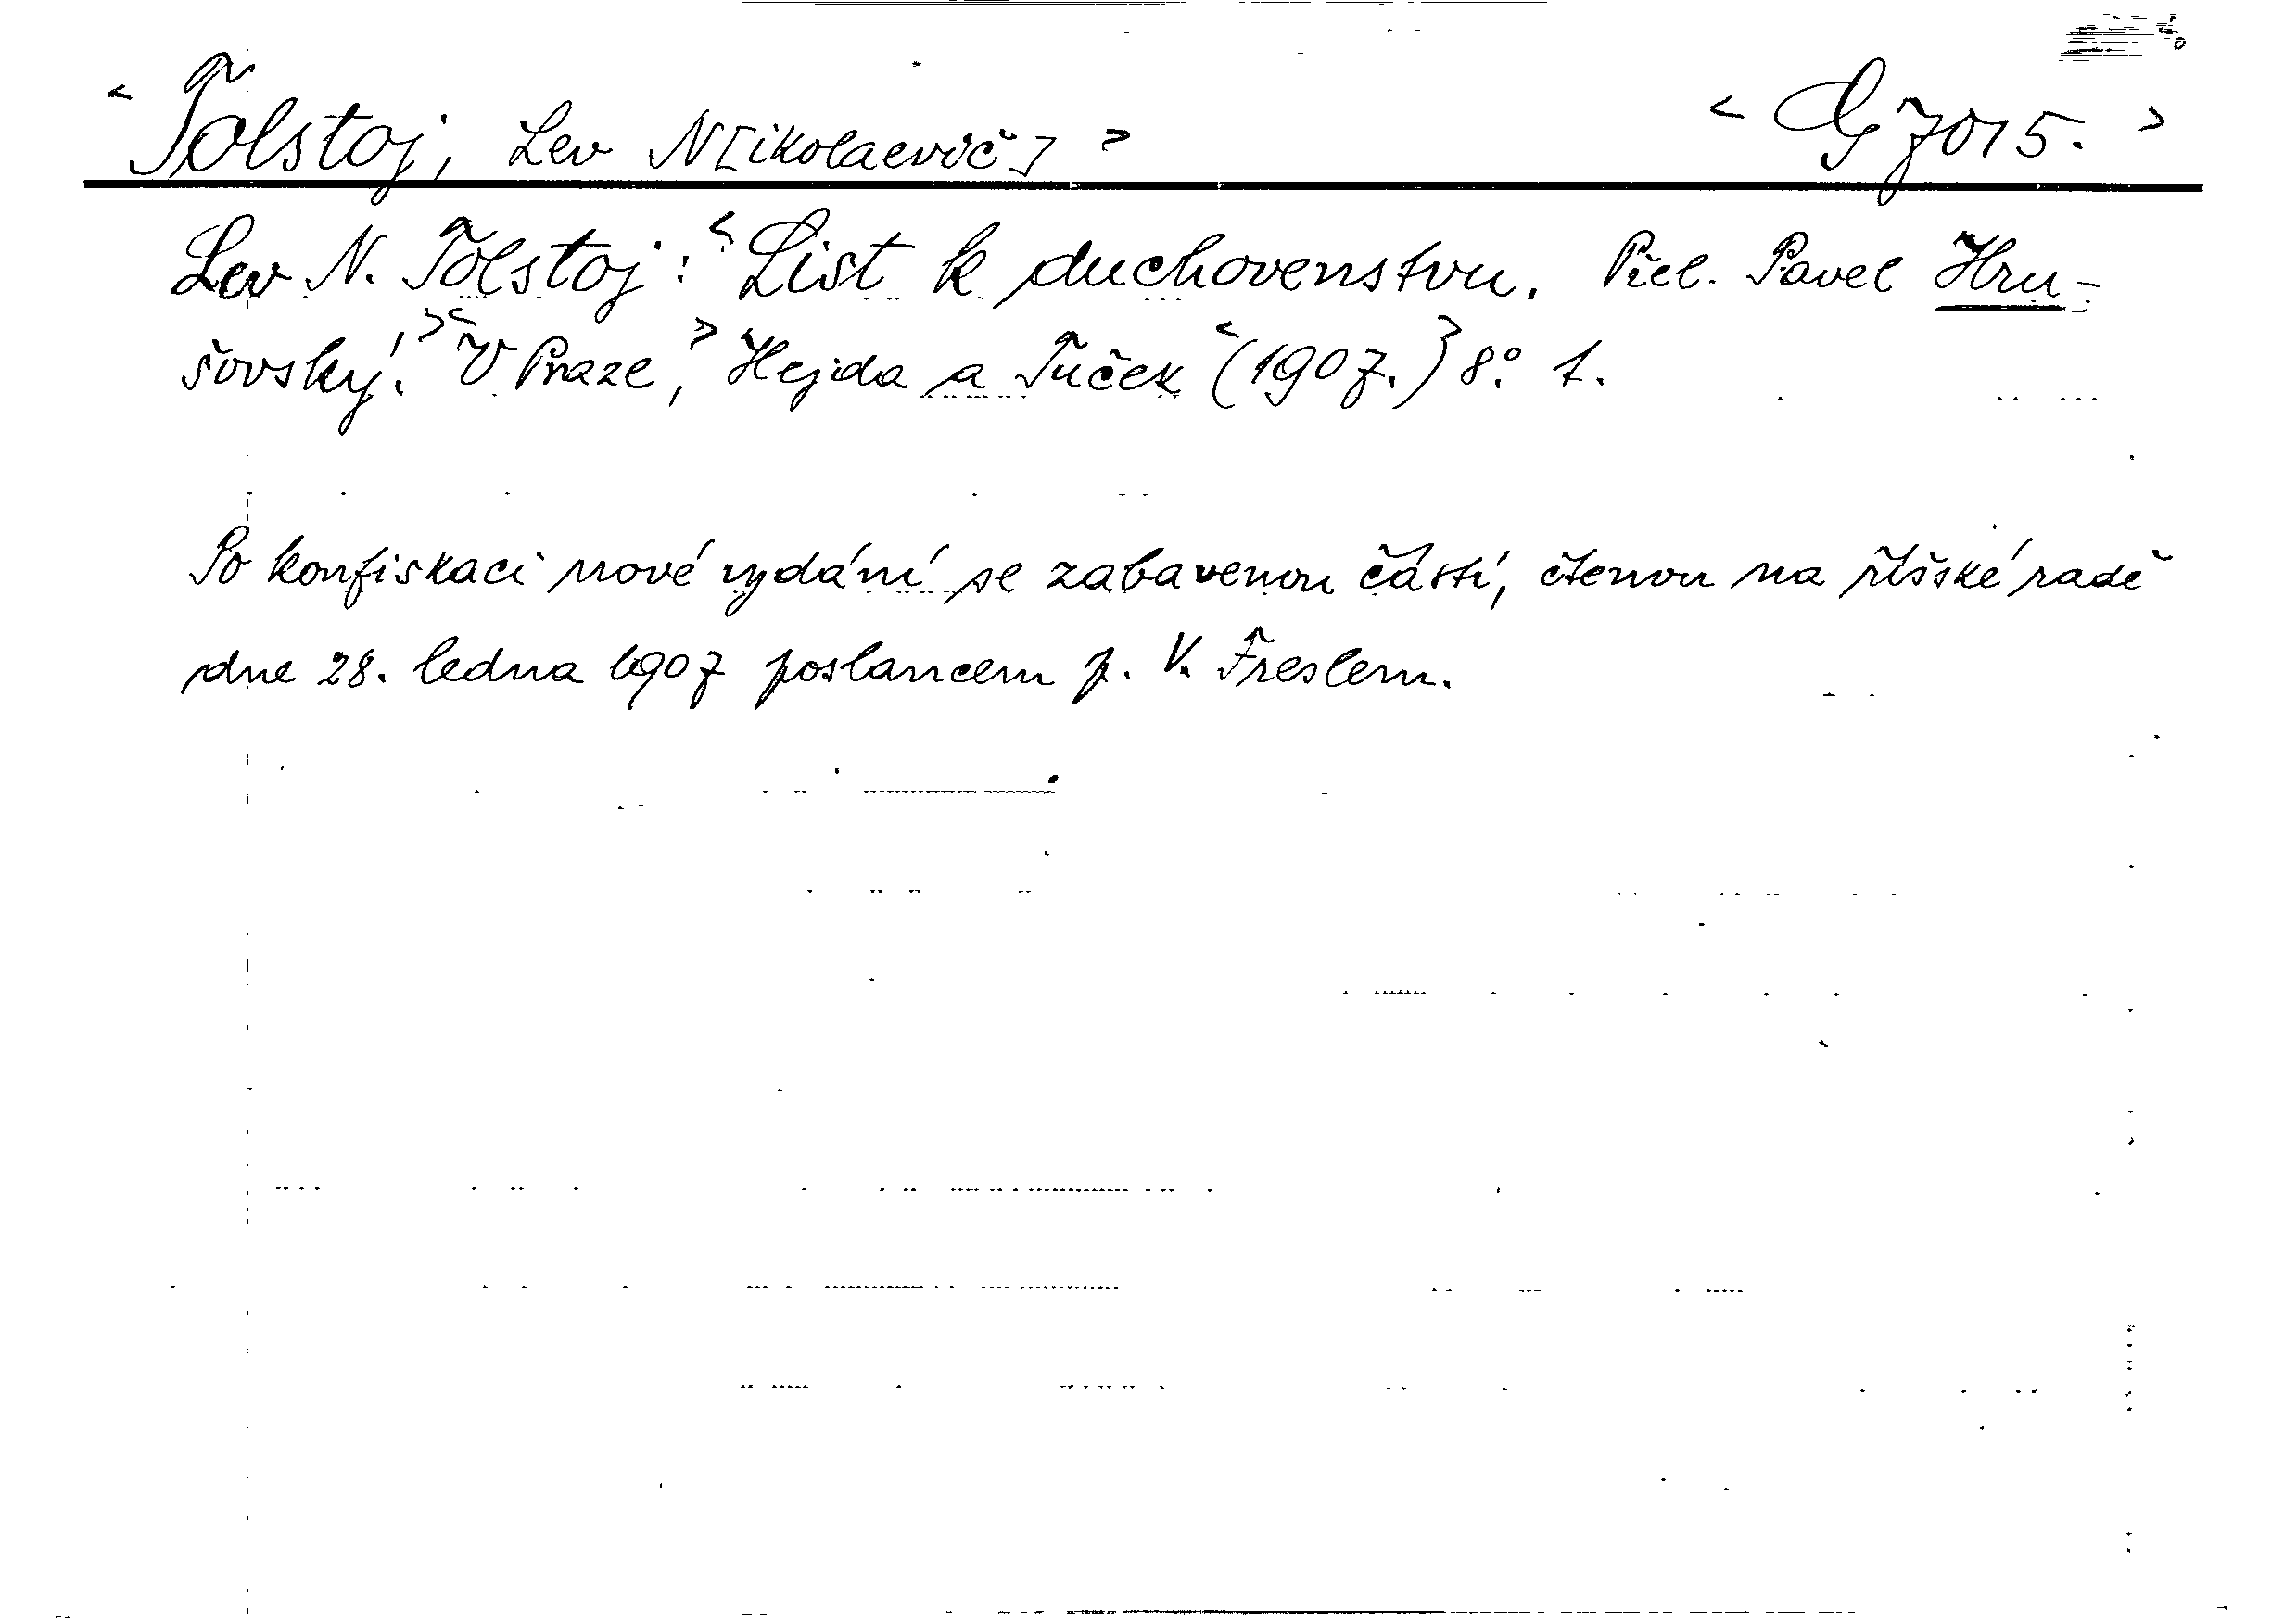 < Tolstoj, Lev N[ikolaevič] > < G 7015. >
Lev N. Tolstoj: < List k duchovenstvu. Přel. Pavel Hru-
šovský. > < V Praze, > Hejda a Tuček < (1907.) > 8.° 1.
Po konfiskaci nové vydání se zabavenou částí, čtenou na říšské radě
dne 28. ledna 1907 poslancem p. V. Freslem.